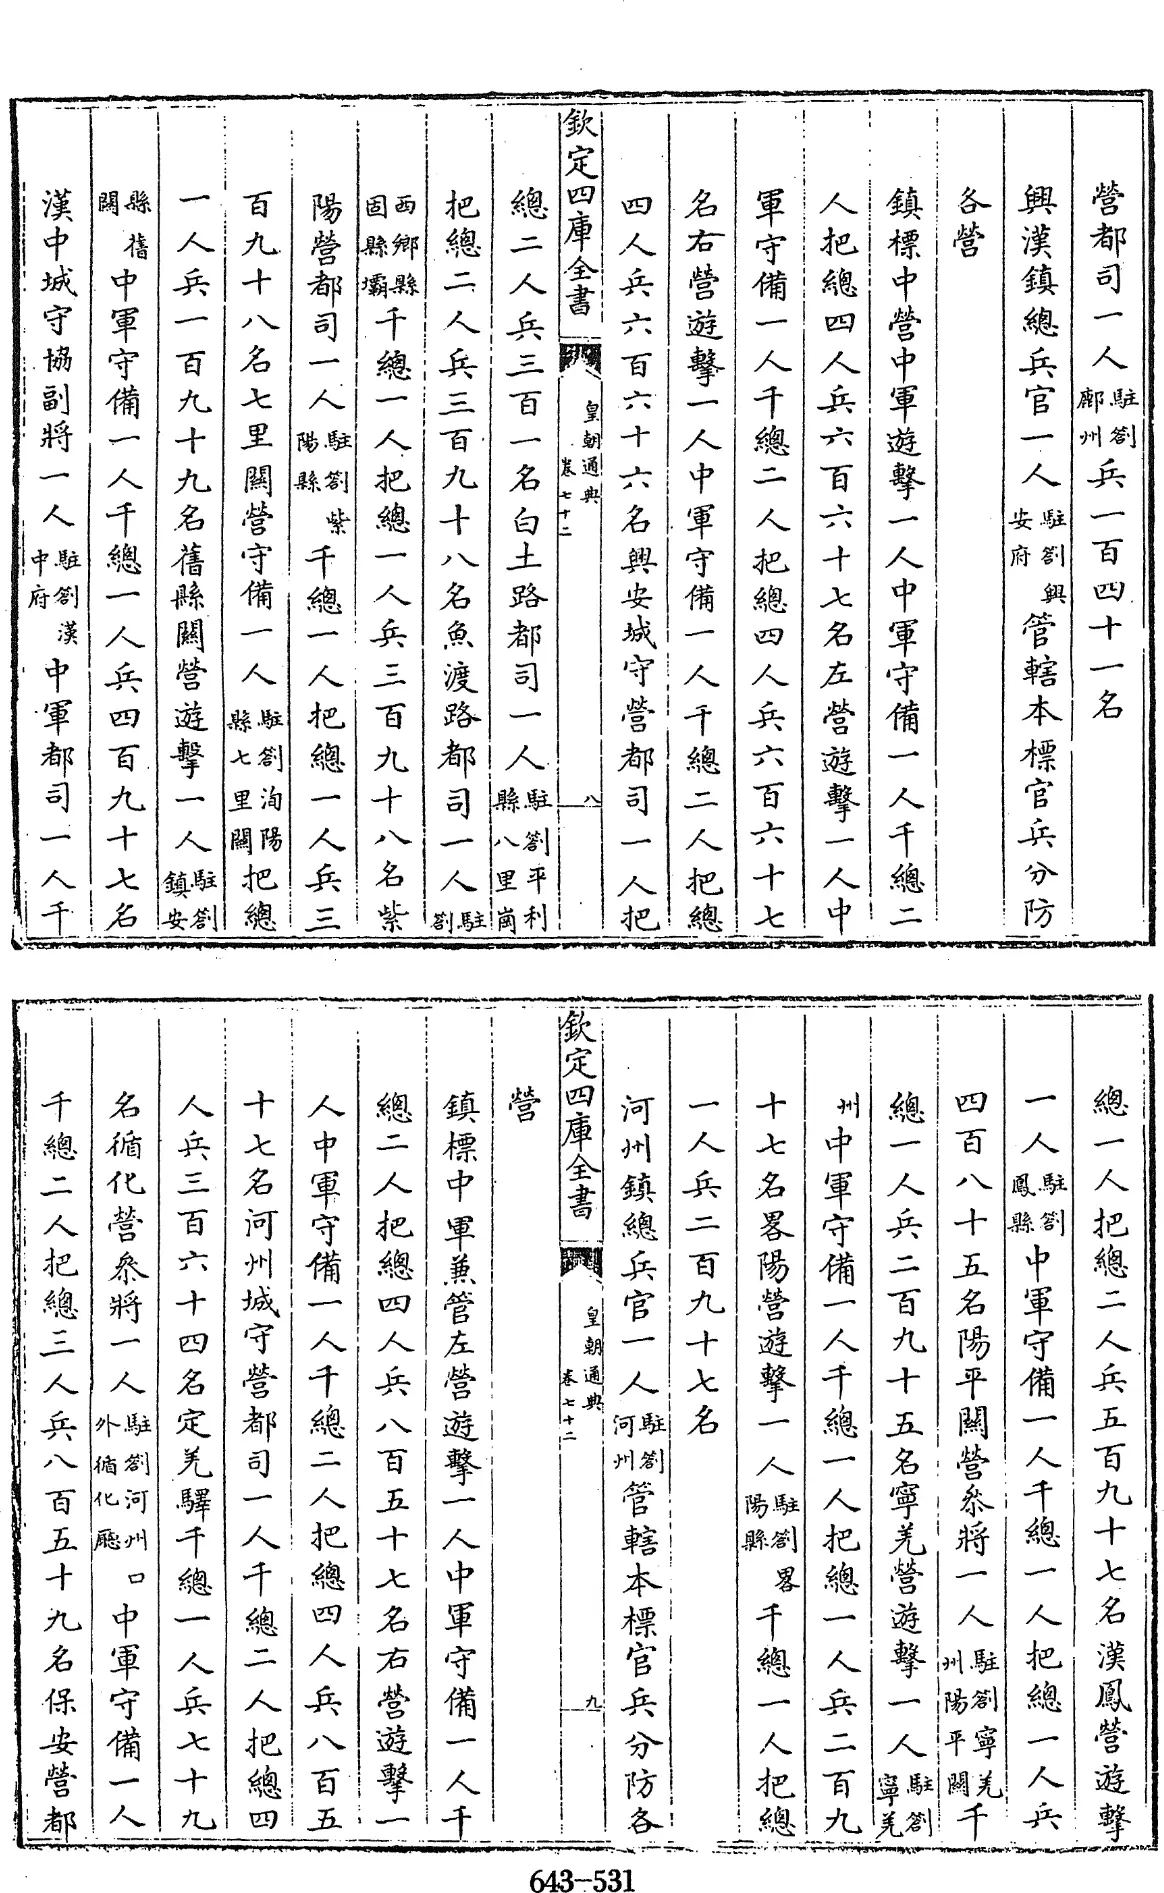 營都司一人駐劄鄜州兵一百四十一名
興漢鎮總兵官一人駐劄興安府管轄本標官兵分防
各營
鎮標中營中軍遊擊一人中軍守備一人千總二
人把總四人兵六百六十七名左營遊擊一人中
軍守備一人千總二人把總四人兵六百六十七
名右營遊擊一人中軍守備一人千總二人把總
四人兵六百六十六名興安城守營都司一人把
欽定四庫全書 皇朝通典 卷七十二 八
總二人兵三百一名白土路都司一人駐劄平利縣八里崗
把總二人兵三百九十八名魚渡路都司一人駐劄
西鄉縣固縣壩千總一人把總一人兵三百九十八名紫
陽營都司一人駐劄紫陽縣千總一人把總一人兵三
百九十八名七里關營守備一人駐劄洵陽縣七里關把總
一人兵一百九十九名舊縣關營遊擊一人駐劄鎮安
縣舊關中軍守備一人千總一人兵四百九十七名
漢中城守協副將一人駐劄漢中府中軍都司一人千
總一人把總二人兵五百九十七名漢鳳營遊擊
一人駐劄鳳縣中軍守備一人千總一人把總一人兵
四百八十五名陽平關營叅將一人駐劄寧羌州陽平關千
總一人兵二百九十五名寧羌營遊擊一人駐劄寧羌
州中軍守備一人千總一人把總一人兵二百九
十七名畧陽營遊擊一人駐劄畧陽縣千總一人把總
一人兵二百九十七名
河州鎮總兵官一人駐劄河州管轄本標官兵分防各
欽定四庫全書 皇朝通典 卷七十二 九
營
鎮標中軍兼管左營遊擊一人中軍守備一人千
總二人把總四人兵八百五十七名右營遊擊一
人中軍守備一人千總二人把總四人兵八百五
十七名河州城守營都司一人千總二人把總四
人兵三百六十四名定羌驛千總一人兵七十九
名循化營叅將一人駐劄河州口外循化廳中軍守備一人
千總二人把總三人兵八百五十九名保安營都
643-531